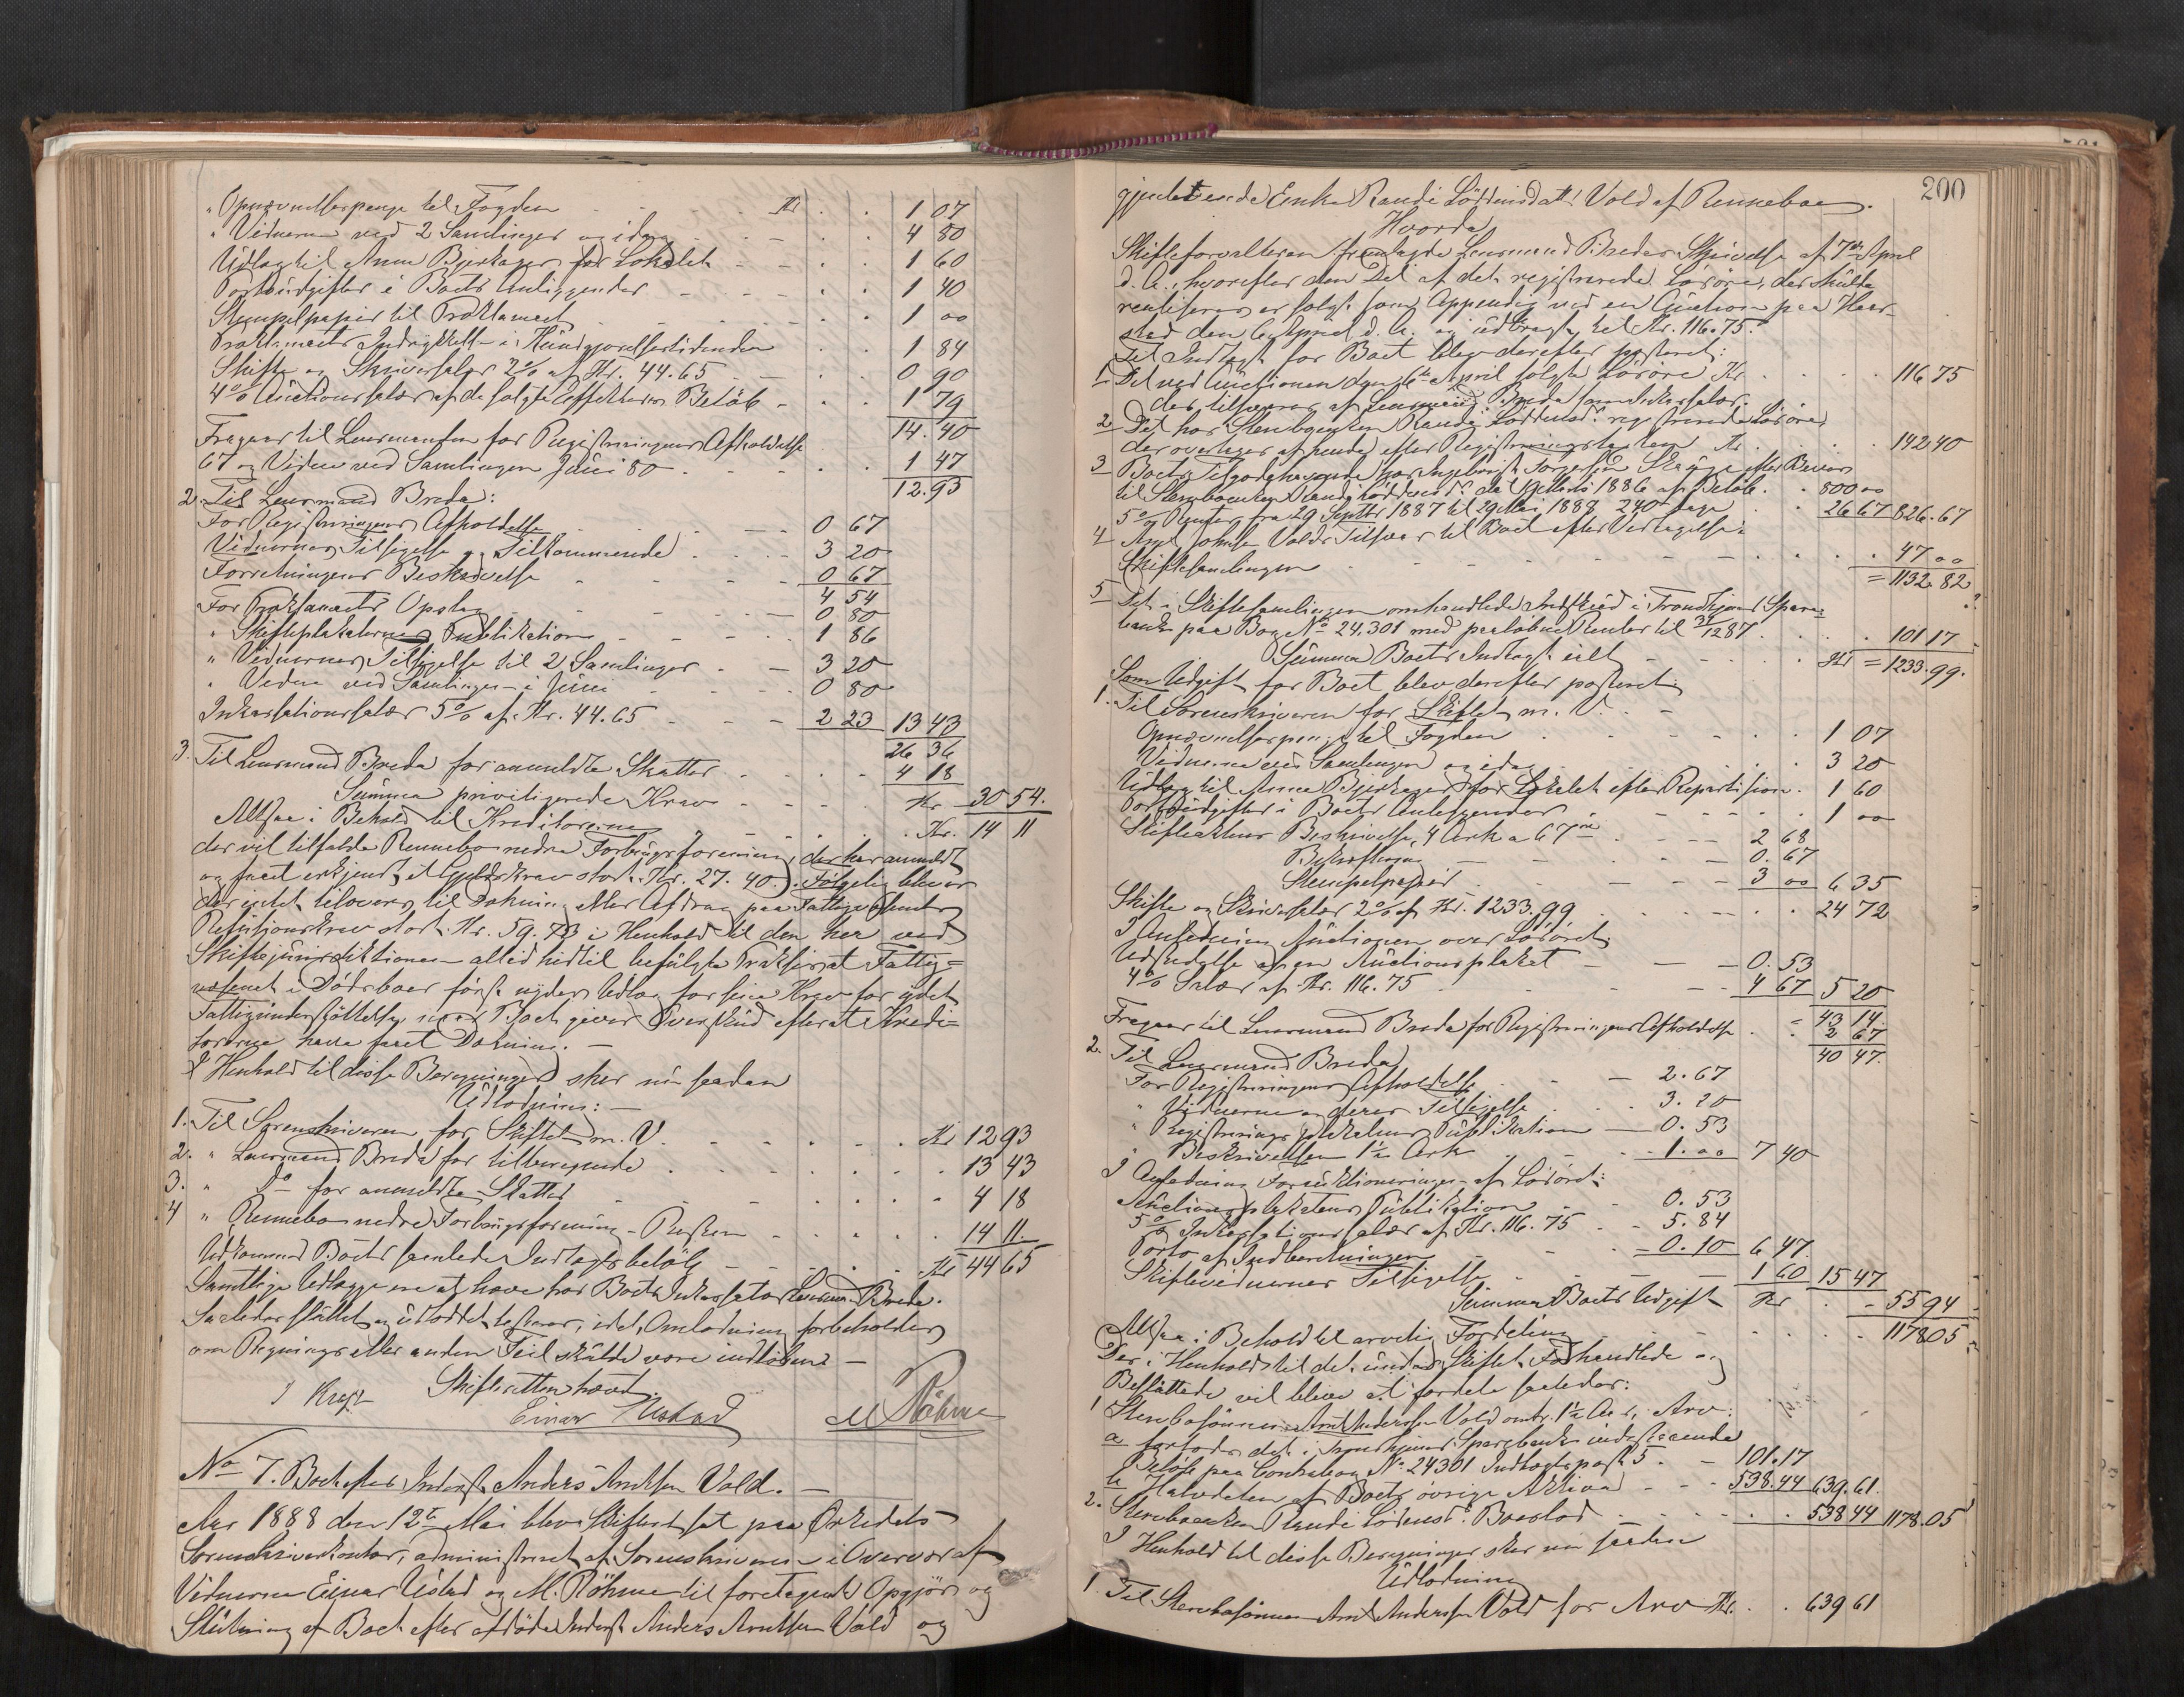 " Opnævnelsespenge til Fogden Kr 1 07
" Vidnerne ved 2 Samlinger og idag 4 80
Udlæg til Anne Bjerkager for Lokalet 1 60
Portoudgifter i Boets Anliggender 1 40
Stempelpapir til Proklamaet 1 00
Proklamaets Indrykkelse i Kundgjørelsestidenden 1 84
Skifte og Skriversalær 2% af Kr. 44.65 0 90
4% Auctionssalær af de solgte Effekters Beløb 1 79
14.40
Fragaar til Lensmanden for Registreringens Afholdelse
67 og Vidne ved Samlingen Juni 80 1 47
12.93
2. Til Lensmand Breda:
For Registreringens Afholdelse 0 67
Vidnernes Tilsigelse og Tilkommende 3 20
Forretningens Beskrivelse 0 67
4 54
For Proklamaets Opslag 0 80
" Skifteplakaternes Publikation 1 86
" Vidnernes Tilsigelse til 2 Samlinger 3 20
" Vidne ved Samlingen i Juni 0 80
Inkassationssalær 5% af Kr. 44.65 2 23 13 43
26 36
3. Til Lensmand Breda for anmeldte Skatter 4 18
Summa priviligerede Krav Kr 30 54.
Altsaa i Behold til Kreditorerne Kr. 14 11
der vil tilfalde Rennebo nedre Forbrugsforening, der har anmeldt
og faaet erkjendt et Gjeldskrav stort Kr. 27.40.). Følgelig bliver
der intet tilovers til Dækning eller Afdrag paa Fattigvæsenets
Refusionskrav stort Kr. 59.73 i Henhold til den her ved
Skiftejurisdiktionen altid hidtil befulgte Praksis at Fattig=
væsenet i Dødsboer først nyder Udlæg for sine Krav for ydet
Fattigunderstøttelse naar Boet giver Overskud efterat Kredi=
torerne have faaet Dækning. –
I Henhold til disse Beregninger sker nu saadan
Udlodning: –
1. Til Sorenskriveren for Skiftet m. V. Kr 12 93
2. " Lensmand Breda for tilberegnede 13 43
3. " Do for anmeldte Skatter 4 18
4 " Rennebo nedre Forbrugsforening – Resten 14 11
Udkommed Boets samlede Indtægtsbeløb Kr 44 65
Samtlige Udlæggene at hæve hos Boets Inkassator Lensmd Breda.
Saaledes sluttet og udloddet testeres, idet Omlodning forbeholdes
om Regnings eller anden Feil skulde være indløben –
Skifteretten hævet.
I Kraft Einar Ustad M Röhme
No 7. Boet efter Inderst Anders Arntsen Vold. –
Aar 1888 den 12te Mai blev Skifteret sat paa Ørkedals
Sorenskriverkontor, administreret af Sorenskriveren i Overvær af
Vidnerne Einar Ustad og M. Röhme til foretagende Opgjør og
Slutning af Boet efter afdøde Inderst Anders Arntsen Vold og
200
gjenlevende Enke Randi Löddensdatt. Vold af Rennebo.
Hvorda
Skifteforvalteren fremlagde Lensmand Bredas Skrivelse af 7de April
d. A., hvorefter den Del af det registrerede Løsøre, der skulde
realiseres er solgt som Appendix ved en Auction paa Haar-
stad den 6 April d. A. og udbragt til Kr. 116.75.
Til Indtægt for Boet blev derefter posteret:
1 Det ved Auctionen den 6te April solgte Løsøre Kr 116 75
der tilsvares af Lensmand Breda som Inkassator.
2 Det hos Stervboenken Randi Löddensd. registrerede Løsøre,
der overtages af hende efter Registreringstaxten Kr 142 40
3 Boets Tilgodehavende hos Ingebrigt Torgersen Skauge efter Bevis
til Stervboenken Randi Löddensd. 1886 af Beløb 800 00
5% Renter fra 29 Septbr 1887 til 29 Mai 1888 240 Dage 26 67 826.67
4 Arnt Johnsen Volds Tilsvar til Boet efter Vedtagelse i
Skiftesamlingen 47 00
= 1132.82
5 Det i Skiftesamlingen omhandlede Indskud i Trondhjems Spare=
bank paa Bog No 24.301 med paaløbne Renter til 31/12 87 101 17
Summa Boets Indtægt ialt Kr = 1233.99.
Som Udgift for Boet blev derefter posteret:
1. Til Sorenskriveren for Skiftet m. V.
Opnævnelsespenge til Fogden 1 07
Vidnerne ved Samlingen og idag 3 20
Udlæg til Anne Bjerkager for Lokalet efter Repartision 1 60
Portoudgifter i Boets Anliggender 1 00
Skifteaktens Beskrivelse, 4 Ark a 67 øre 2 68
Bekræftelse 0.67
Stempelpapir 3 00 6 35
Skifte og Skriversalær 2% af Kr. 1233.99 24 72
I Anledning Auctionen over Løsøret:
Udstedelse af en Auctionsplakat 0.53
4% Salær af Kr. 116.75 4 67 5 20
= 43 14
Fragaar til Lensmand Breda for Registreringens Afholdelse 2 67
40 47.
2. Til Lensmand Breda
For Registreringens Afholdelse 2.67
" Vidnerne og deres Tilsigelse 3.20
" Registreringsplakatens Publikation 0.53
" Beskrivelsen 1½ Ark 1.00 7 40
I Anledning Forauktioneringen af Løsøret:
Auctionsplakatens Publikation 0.53
5% Inkassationssalær af Kr. 116.75 5.84
Porto af Indberetningen 0.10 6 47.
Skiftevidnernes Tilsigelse 1 60 15 47
Summa Boets Udgift Kr 55 94
Altsaa i Behold til arvelig Fordeling 1178 05
Der i Henhold til det under Skiftet Forhandlede og
Besluttede vil blive at fordele saaledes:
1 Stervbosønnen Arnt Anderssen Vold omtr. 1½ Aar, Arv:
a forlods det i Trondhjems Sparebank indestaaende
Beløb paa Contrabog No 24301 Indtægtspost 5. 101.17
b Halvdelen af Boets øvrige Aktiva 538.44 639.61.
2. Stervboenken Randi Lödensd. Boeslod 538 44 1178.05
I Henhold til disse Beregninger sker nu saadan
Udlodning
1. Til Stervbosønnen Arnt Anderssen Vold for Arv Kr. 639 61